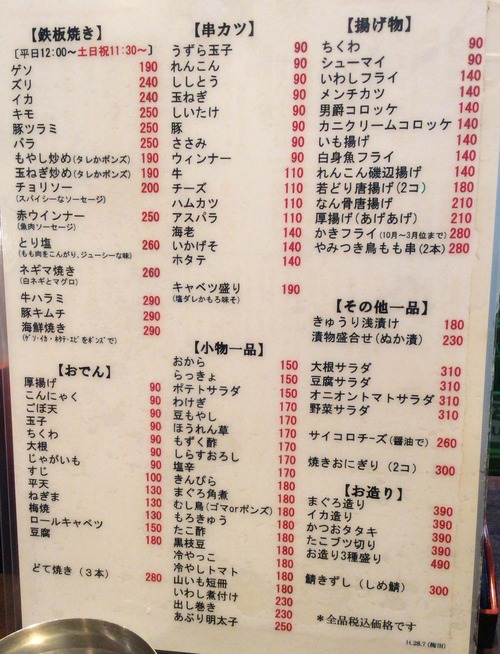 【鉄板焼き】
〔平日12:00〜土日祝11:30〜〕
ゲソ 190
ズリ 240
イカ 240
キモ 250
豚ツラミ 250
バラ 250
もやし炒め(タレかポンズ) 190
玉ねぎ炒め(タレかポンズ) 190
チョリソー 200
(スパイシーなソーセージ)
赤ウインナー 250
(魚肉ソーセージ)
とり塩 260
(もも肉をこんがり、ジューシーな味)
ネギマ焼き 260
(白ネギとマグロ)
牛ハラミ 290
豚キムチ 290
海鮮焼き 290
(ゲソ・イカ・ホタテ・エビをポンズで)
【おでん】
厚揚げ 90
こんにゃく 90
ごぼ天 90
玉子 90
ちくわ 90
大根 90
じゃがいも 90
すじ 100
平天 130
ねぎま 130
梅焼 130
ロールキャベツ 150
豆腐 180
どて焼き(3本) 280
【串カツ】
うずら玉子 90
れんこん 90
ししとう 90
玉ねぎ 90
しいたけ 90
豚 90
ささみ 90
ウィンナー 90
牛 110
チーズ 110
ハムカツ 110
アスパラ 140
海老 140
いかげそ 140
ホタテ 140
キャベツ盛り 190
(塩ダレかもろ味そ)
【小物一品】
おから 150
らっきょ 150
ポテトサラダ 150
わけぎ 170
豆もやし 170
ほうれん草 170
もずく酢 170
しらすおろし 170
塩辛 170
きんぴら 180
まぐろ角煮 180
むし鳥(ゴマorポンズ) 180
もろきゅう 180
たこ酢 180
黒枝豆 180
冷やっこ 180
冷やしトマト 180
山いも短冊 180
いわし煮付け 230
出し巻き 230
あぶり明太子 250
【揚げ物】
ちくわ 90
シューマイ 90
いわしフライ 140
メンチカツ 140
男爵コロッケ 140
カニクリームコロッケ 140
いも揚げ 140
白身魚フライ 140
れんこん磯辺揚げ 140
若どり唐揚げ(2コ) 180
なん骨唐揚げ 210
厚揚げ(あげあげ) 210
かきフライ(10月〜3月位まで) 280
やみつき鳥もも串(2本) 280
【その他一品】
きゅうり浅漬け 180
漬物盛合せ(ぬか漬) 230
大根サラダ 310
豆腐サラダ 310
オニオントマトサラダ 310
野菜サラダ 310
サイコロチーズ(醤油で) 260
焼きおにぎり(2コ) 300
【お造り】
まぐろ造り 390
イカ造り 390
かつおタタキ 390
たこブツ切り 390
お造り3種盛り 490
鯖きずし(しめ鯖) 300
*全品税込価格です
H.28.7(梅田)